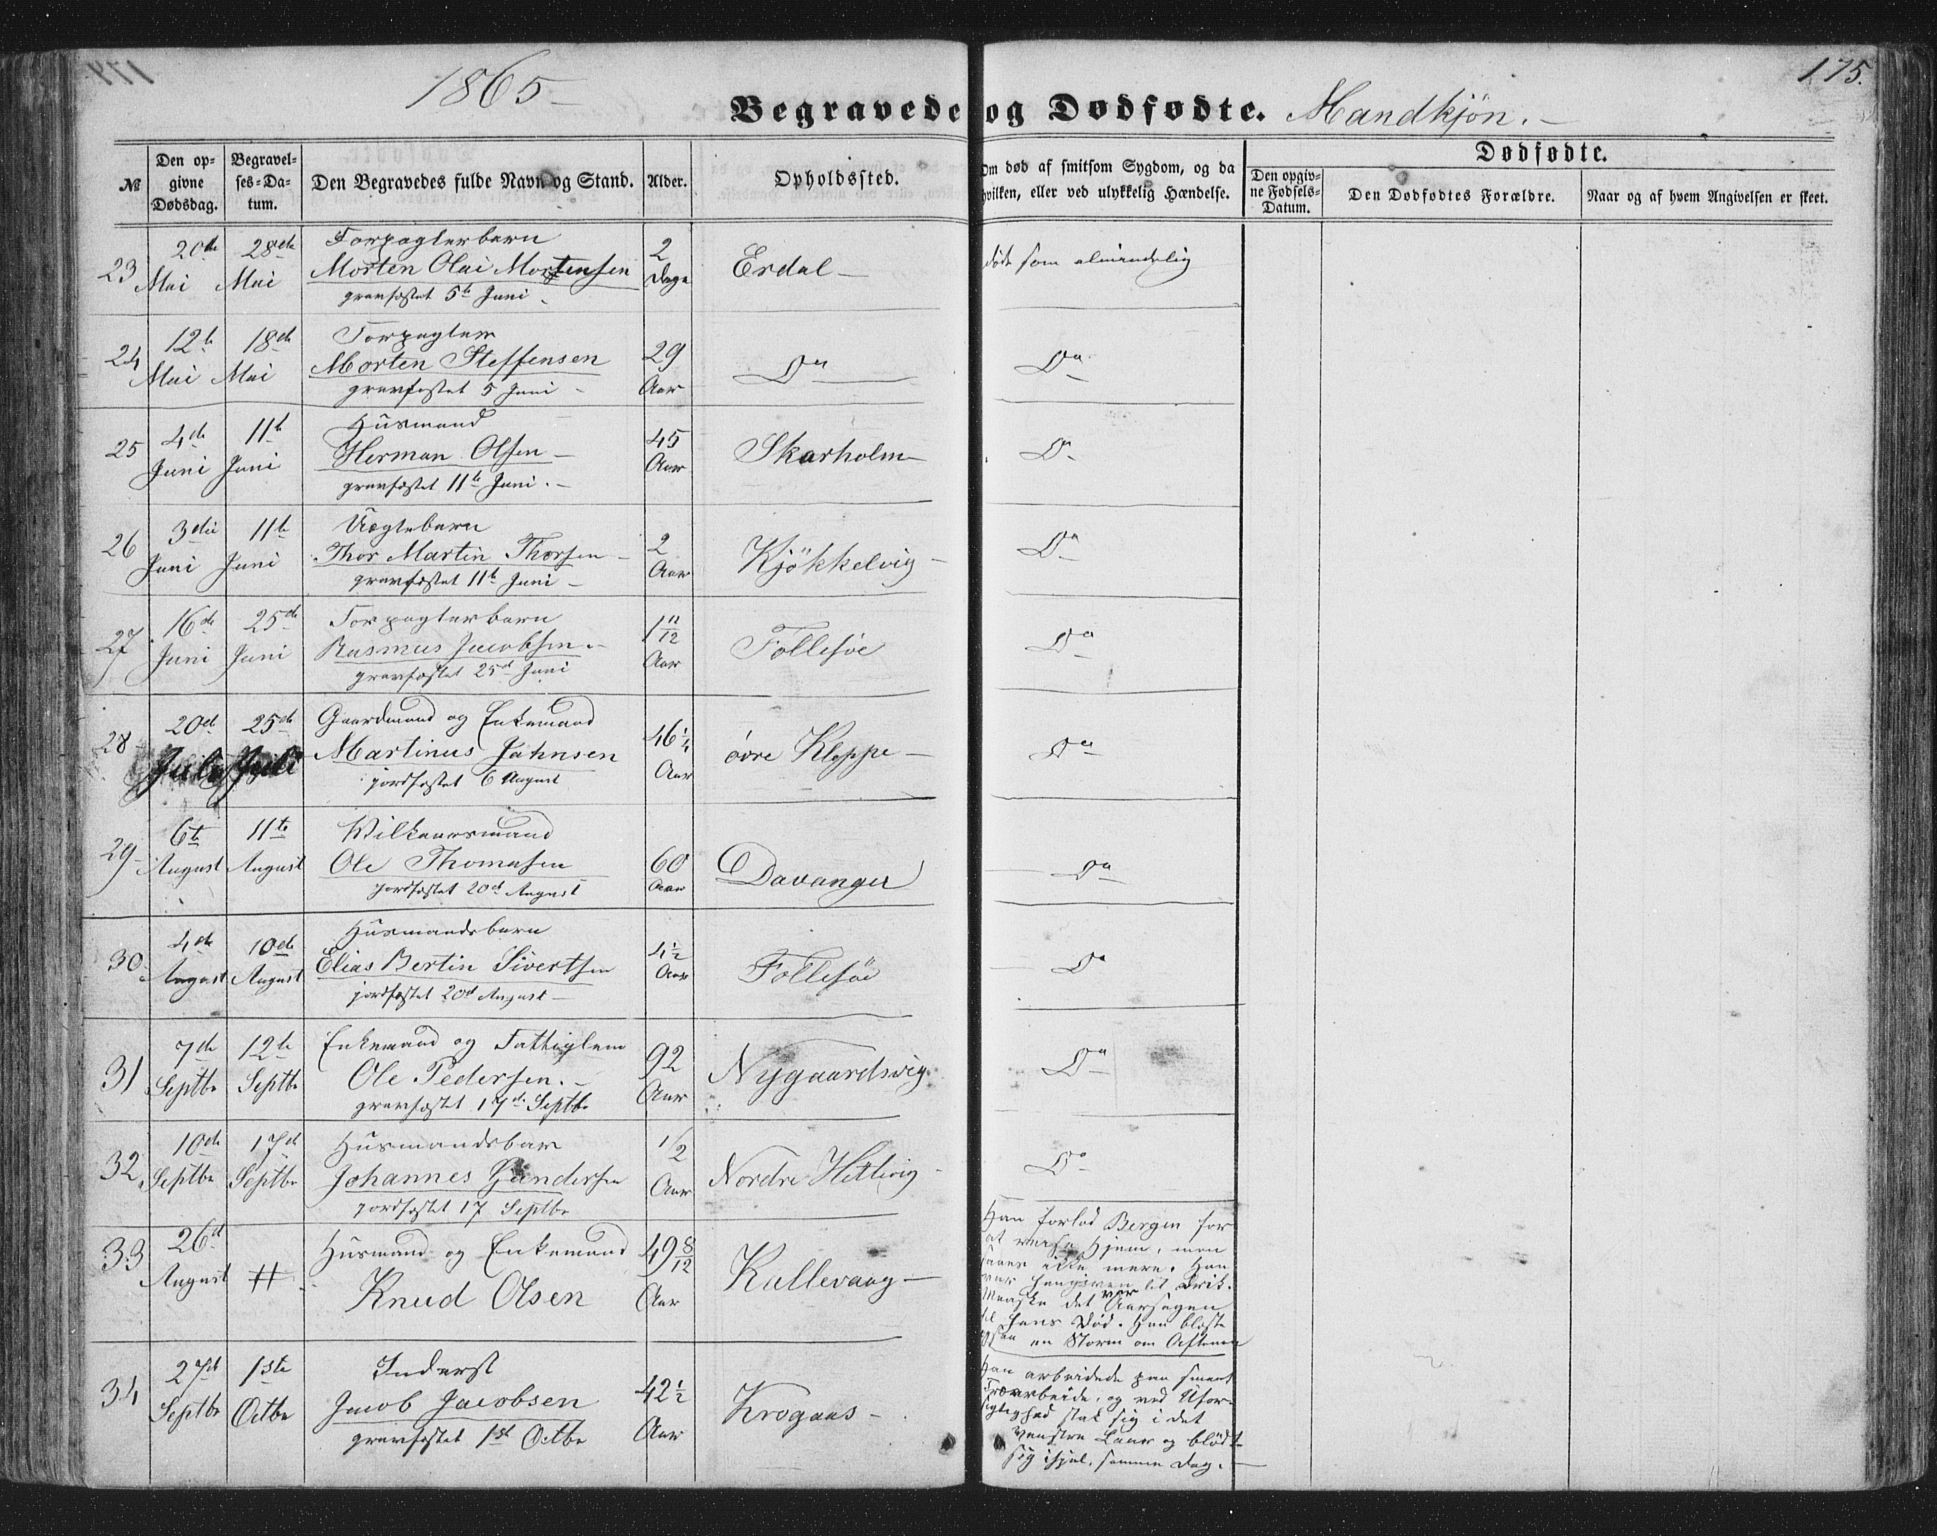 1865
175.
Begravede og Dødfødte. Mandkjön.
№
Den opgivne Dødsdag.
Begravelses-Datum.
Den Begravedes fulde Navn og Stand.
Alder.
Opholdssted.
Om død af smitsom Sygdom, og da hvilken, eller ved ulykkelig Hændelse.
Dødfødte.
Den opgivne Fødsels-Datum.
Den Dødfødtes Forældre.
Naar og af hvem Angivelsen er skeet.
23 20de Mai 28de Mai Forpagterbarn
Morten Olai Mortensen 2 Dage Erdal døde som almindelig
gravfæstet 5te Juni
24 12te Mai 18de Mai Forpagter
Morten Steffensen 29 Aar Do Do
gravfæstet 5 Juni
25 4de Juni 11te Juni Husmand
Herman Olsen 45 Aar Skarholm Do
gravfæstet 11te Juni
26 3die Juni 11te Juni
Thor Martin Thorsen 2 Aar Kjökkelvig Do
gravfæstet 11te Juni
27 16de Juni 25de Juni Forpagterbarn
Rasmus Jacobsen 1 11/12 Aar Follesöe Do
gravfæstet 25de Juni
28 20de Juli 25de Juli Gaardmand og Enkemand
Martinus Johnsen 46 1/4 Aar övre Kleppe Do
jordfæstet 6 August
29 6te August 11te August Vilkaarsmand
Ole Thomasen 60 Aar Davanger Do
jordfæstet 20de August
30 4de August 10de August Husmandsbarn
Elias Bertin Sivertsen 4 1/2 Aar Follesöe Do
jordfæstet 20de August
31 7de Septbr 12te Septbr Enkemand og Fattiglem
Ole Pedersen 92 Aar Nygaardsvig Do
gravfæstet 17de Septbr
32 10de Septbr 17de Septbr Husmandsbar
Johannes Gundersen 1/2 Aar Nordre Hetlevig Do
jordfæstet 17 Septbr
33 26de August # Husmand og Enkemand
Knud Olsen 49 8/12 Aar Kallevaag
Han forlod Bergen for
at reise Hjem, men
saaes ikke mere. Han
var hengiven til Drik.
Maaske det var Aarsagen
til hans Död. Han blæste
en Storm om Aftenen
34 27de Septbr 1ste Octbr Inderst
Jacob Jacobsen 42 1/2 Aar Krogaas
gravfæstet 1ste Octbr
Han arbeidede paa smaat
Træarbeide, og ved Ufor-
sigtighed stak sig i det
venstre Laar og blödte
sig ihjel, samme Dag.